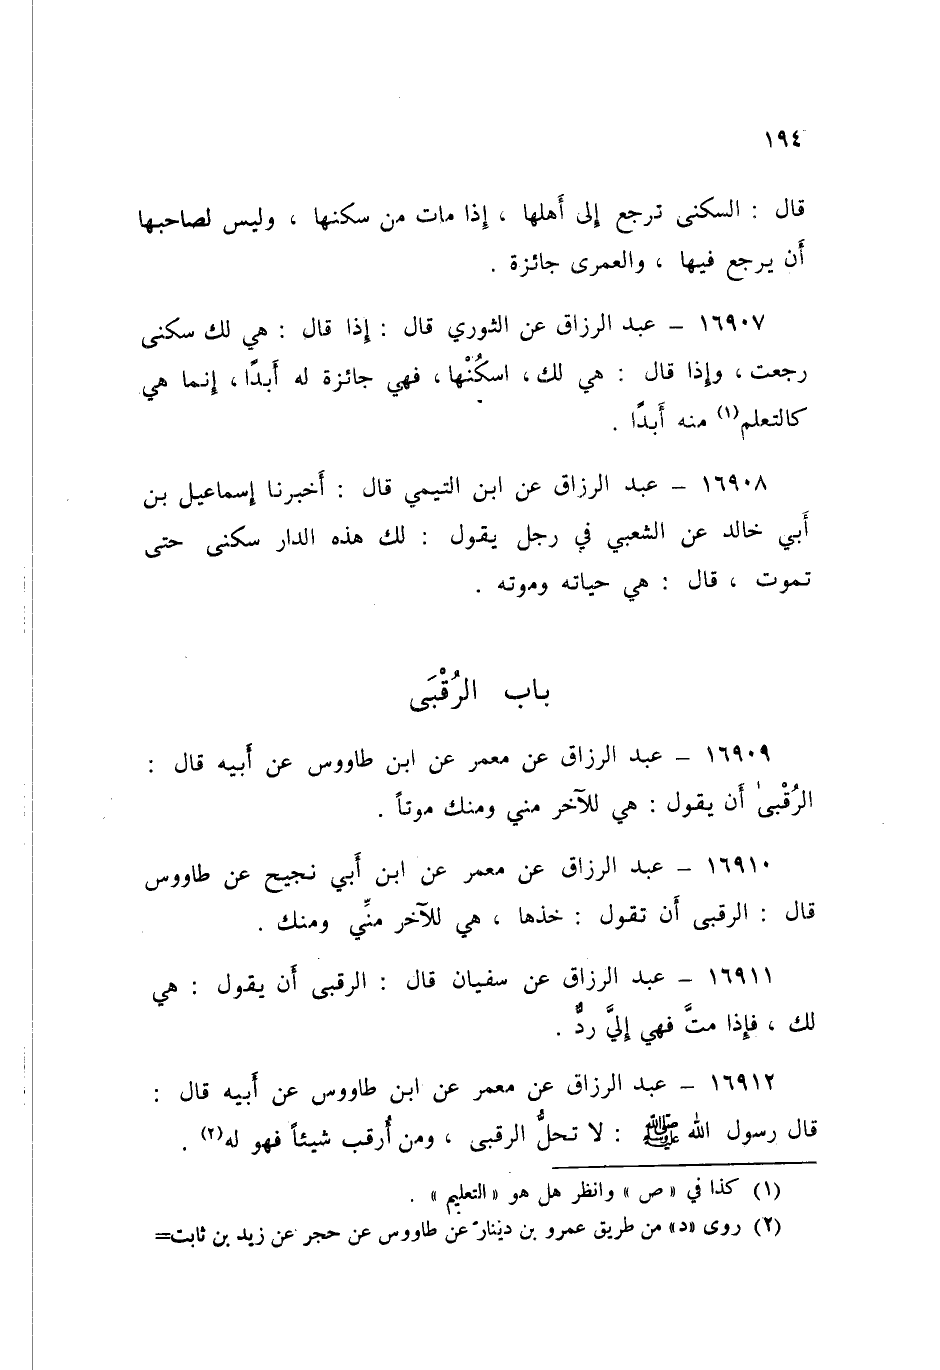 ١٩٤
قال : السكنى ترجع إلى أهلها ، إذا مات من سكنها ، وليس لصاحبها
أن يرجع فيها ، والعمرى جائزة .
١٦٩٠٧ – عبد الرزاق عن الثوري قال : إذا قال : هي لك سكنى
رجعت ، وإذا قال : هي لك ، اسكُنْها ، فهي جائزة له أبدًا ، إنما هي
كالتعلم(١) منه أبدًا .
١٦٩٠٨ – عبد الرزاق عن ابن التيمي قال : أخبرنا إسماعيل بن
أبي خالد عن الشعبي في رجل يقول : لك هذه الدار سكنى حتى
تموت ، قال : هي حياته وموته .
باب الرُقْبَى
١٦٩٠٩ – عبد الرزاق عن معمر عن ابن طاووس عن أبيه قال :
الرُقْبىٰ أن يقول : هي للآخر مني ومنك موتاً .
١٦٩١٠ – عبد الرزاق عن معمر عن ابن أبي نجيح عن طاووس
قال : الرقبى أن تقول : خذها ، هي للآخر منِّي ومنك .
١٦٩١١ – عبد الرزاق عن سفيان قال : الرقبى أن يقول : هي
لك ، فإذا متَّ فهي إليَّ ردٌّ .
١٦٩١٢ – عبد الرزاق عن معمر عن ابن طاووس عن أبيه قال :
قال رسول الله ﷺ : لا تحلُّ الرقبى ، ومن أُرقب شيئاً فهو له(٢) .
(١) كذا في « ص » وانظر هل هو « التعليم » .
(٢) روى «د» من طريق عمرو بن دينار عن طاووس عن حجر عن زيد بن ثابت=